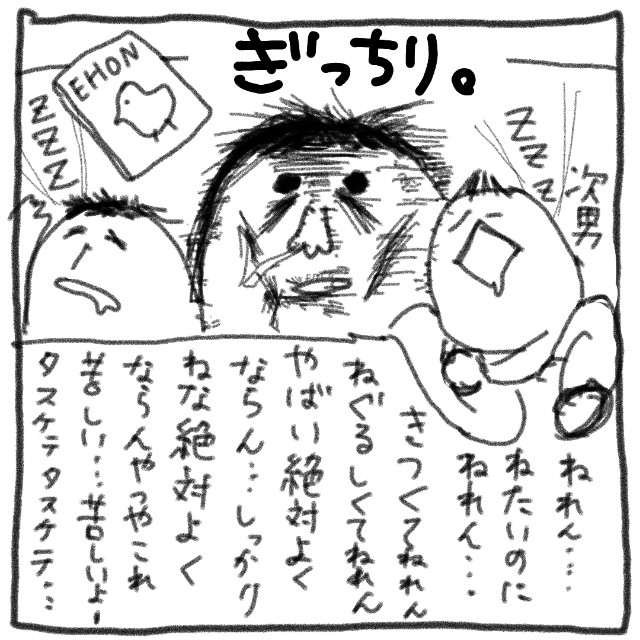 ぎっちり。
EHON
ZZZ
ZZZ
次男
ねれん…
ねたいのに
ねれん…
きつくてねれん
ねぐるしくてねれん
やばい絶対よく
ならん…しっかり
ねな絶対よく
ならんやつやこれ
苦しい…苦しいよー
タスケテタスケテ…